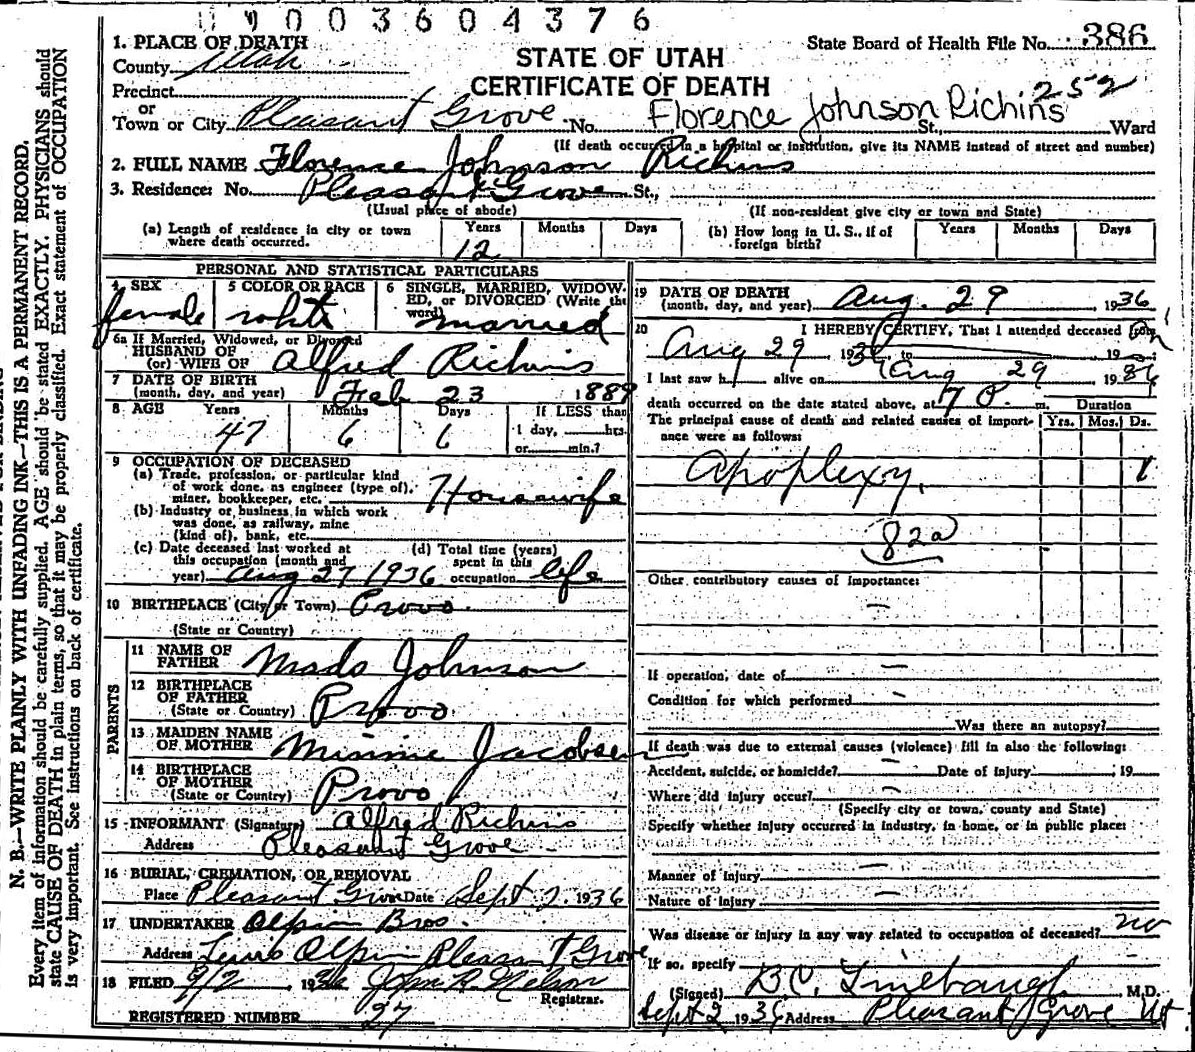 003604376
State Board of Health File No. 386
STATE OF UTAH
CERTIFICATE OF DEATH
1. PLACE OF DEATH
County Utah
Precinct
or
Town or City Pleasant Grove No. Florence Johnson Richins 252 St., Ward
(If death occurred in a hospital or institution, give its NAME instead of street and number)
2. FULL NAME Florence Johnson Richins
3. Residence: No. Pleasant Grove St.,
(Usual place of abode) (If non-resident give city or town and State)
(a) Length of residence in city or town where death occurred. Years 12 Months Days
(b) How long in U. S., if of foreign birth? Years Months Days
PERSONAL AND STATISTICAL PARTICULARS
4 SEX female
5 COLOR OR RACE white
6 SINGLE, MARRIED, WIDOWED, or DIVORCED (Write the word) married
6a If Married, Widowed, or Divorced
HUSBAND OF
(or) WIFE OF Alfred Richins
7 DATE OF BIRTH
(month, day, and year) Feb 23 1889
8 AGE Years 47 Months 6 Days 6 If LESS than 1 day, hrs. or min.?
9 OCCUPATION OF DECEASED
(a) Trade, profession, or particular kind of work done, as engineer (type of), miner, bookkeeper, etc. Housewife
(b) Industry or business in which work was done, as railway, mine (kind of), bank, etc.
(c) Date deceased last worked at this occupation (month and year) Aug 27 1936
(d) Total time (years) spent in this occupation life
10 BIRTHPLACE (City or Town) Provo
(State or Country)
PARENTS
11 NAME OF FATHER Mads Johnson
12 BIRTHPLACE OF FATHER
(State or Country) Provo
13 MAIDEN NAME OF MOTHER Minnie Jacobsen
14 BIRTHPLACE OF MOTHER
(State or Country) Provo
15 INFORMANT (Signature) Alfred Richins
Address Pleasant Grove
16 BURIAL, CREMATION, OR REMOVAL
Place Pleasant Grove Date Sept 2, 1936
17 UNDERTAKER Bros.
Address Pleasant Grove
18 FILED 9/2 1936 John R. Nelson
Registrar.
REGISTERED NUMBER 27
19 DATE OF DEATH
(month, day, and year) Aug. 29 1936
20 I HEREBY CERTIFY, That I attended deceased
Aug 29, 1936, to 19
I last saw h alive on Aug 29 1936
death occurred on the date stated above, at 7 P. m.
The principal cause of death and related causes of importance were as follows: Duration Yrs. Mos. Ds.
Apoplexy. 1
82a
Other contributory causes of importance:
—
If operation, date of —
Condition for which performed —
Was there an autopsy?
If death was due to external causes (violence) fill in also the following:
Accident, suicide, or homicide? — Date of injury , 19
Where did injury occur? —
(Specify city or town, county and State)
Specify whether injury occurred in industry, in home, or in public place:
—
Manner of injury —
Nature of injury —
Was disease or injury in any way related to occupation of deceased? no
If so, specify
(Signed) B.C. Linebaugh M.D.
Sept 2 1936 Address Pleasant Grove Ut
N. B.—WRITE PLAINLY WITH UNFADING INK—THIS IS A PERMANENT RECORD.
Every item of information should be carefully supplied. AGE should be stated EXACTLY. PHYSICIANS should
state CAUSE OF DEATH in plain terms, so that it may be properly classified. Exact statement of OCCUPATION
is very important. See instructions on back of certificate.